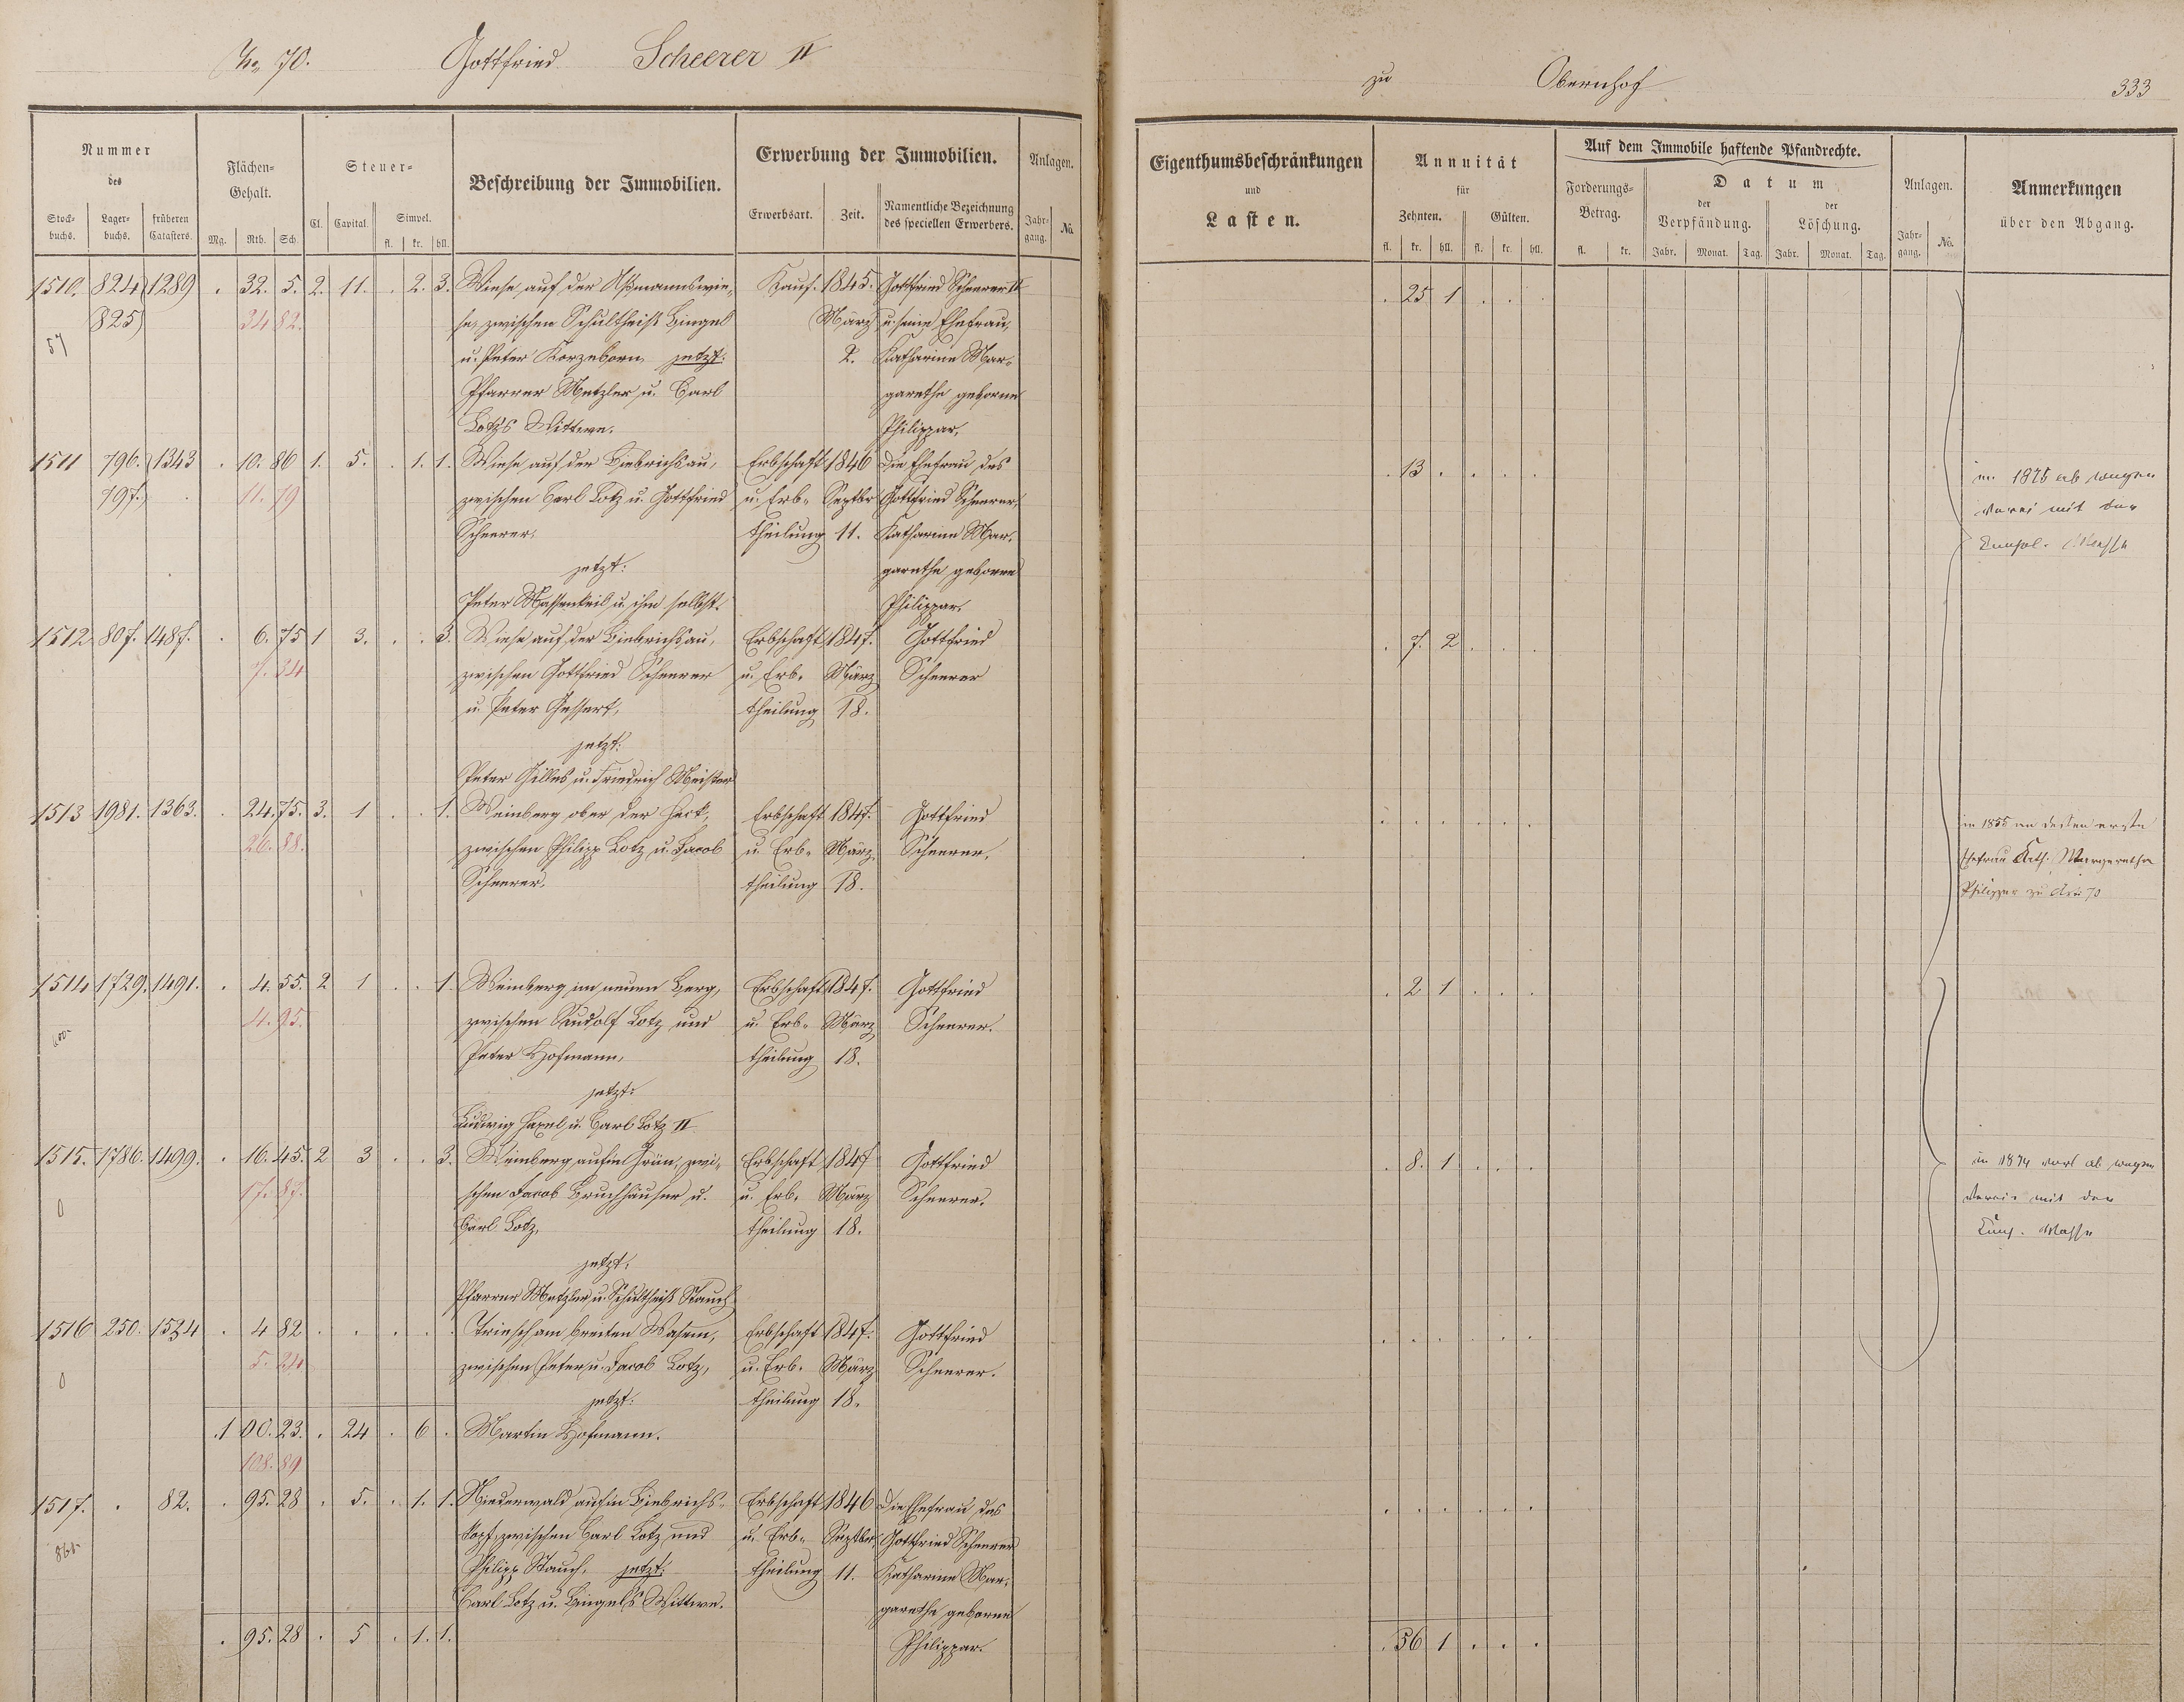 No 70. Gottfried Scheerer II
zu Obernhof 333
Nummer des
Stockbuchs. Lagerbuchs. früheren Catasters.
Flächen-Gehalt.
Mg. Rth. Sch.
Steuer-
Cl. Capital. Simpel.
fl. kr. hll.
Beschreibung der Immobilien.
Erwerbung der Immobilien.
Erwerbsart. Zeit. Namentliche Bezeichnung des speciellen Erwerbers.
Anlagen.
Jahrgang. No.
Eigenthumsbeschränkungen
und
Lasten.
Annuität
für
Zehnten. Gülten.
fl. kr. hll. fl. kr. hll.
Auf dem Immobile haftende Pfandrechte.
Forderungs-Betrag.
fl. kr.
Datum
der Verpfändung. der Löschung.
Jahr. Monat. Tag. Jahr. Monat. Tag.
Anlagen.
Jahrgang. No.
Anmerkungen
über den Abgang.
1510. 824 1289 . 32. 5. 2. 11. . 2. 3. Wiese auf der Aßmannswie- Kauf. 1845. Gottfried Scheerer II . 25 1 . . .
825) 34 82. se, zwischen Schultheiß Bingel März u. seine Ehefrau,
57 u. Peter Korzeborn, jetzt: 2. Katharine Mar-
Pfarrer Metzler u. Carl garethe geborne
Lotz's Wittwe. Philippar,
1511 796. 1343 . 10. 86 1. 5. . 1. 1. Wiese auf der Biebrichsau, Erbschaft 1846 die Ehefrau des . 13 . . . .
797.) 11. 79 zwischen Carl Lotz u. Gottfried u. Erb- Septbr Gottfried Scheerer, in 1875 ab wegen
Scheerer, theilung 11. Katharine Mar- Verei mit der
jetzt: garethe geborne Consol. Masse
Peter Massenkeil u. ihm selbst. Philippar.
1512 807. 1487. . 6. 75 1 3. . . 3. Wiese auf der Biebrichsau, Erbschaft 1847. Gottfried . 7. 2 . . .
7. 34 zwischen Gottfried Scheerer u. Erb- März Scheerer
u. Peter Gessert, theilung 18.
jetzt:
Peter Gilles u. Friedrich Meister
1513 1981. 1363. . 24. 75. 3. 1 . . 1. Weinberg ober der Heck, Erbschaft 1847. Gottfried . . . . . .
26. 88. zwischen Philipp Lotz u. Jacob u. Erb- März Scheerer. in 1855 an dessen erste
Scheerer. theilung 18. Ehefrau Kath. Margaretha
Philippar zu Art 70
1514 1729. 1491. . 4. 55. 2 1 . . 1. Weinberg im neuen Berg, Erbschaft 1847. Gottfried . 2 1 . . .
4. 95. zwischen Rudolf Lotz und u. Erb- März Scheerer.
Peter Hofmann, theilung 18.
jetzt:
Ludwig Hexel u. Carl Lotz II
1515. 1786. 1499. . 16. 45. 2 3 . . 3. Weinberg aufm Grün, zwi- Erbschaft 1847 Gottfried . 8. 1 . . .
17. 87. schen Jacob Bruchhäuser u. u. Erb- März Scheerer. in 1874 ab wegen
0 Carl Lotz, theilung 18. Verei mit der
jetzt: Masse
Pfarrer Metzler u. Schultheiß Rauch
1516 250. 1524 . 4 82 . . . . . Triesch am breiten Wasem, Erbschaft 1847. Gottfried . . . . . .
5. 24 zwischen Peter u. Jacob Lotz, u. Erb- März Scheerer.
0 jetzt: theilung 18.
. 1 00. 23. . 24 . 6 . Martin Hofmann.
108. 89
1517. . 82. . 95. 28 . 5. . 1. 1. Niederwald aufm Biebrichs- Erbschaft 1846 die Ehefrau des . . . . . .
kopf, zwischen Carl Lotz und u. Erb- Septbr. Gottfried Scheerer
Philipp Rauch, jetzt: theilung 11. Katharine Mar-
Carl Lotz u. Bingel's Wittwe. garethe geborne
. 95. 28 . 5 . 1. 1. Philippar. . 56 1 . . .